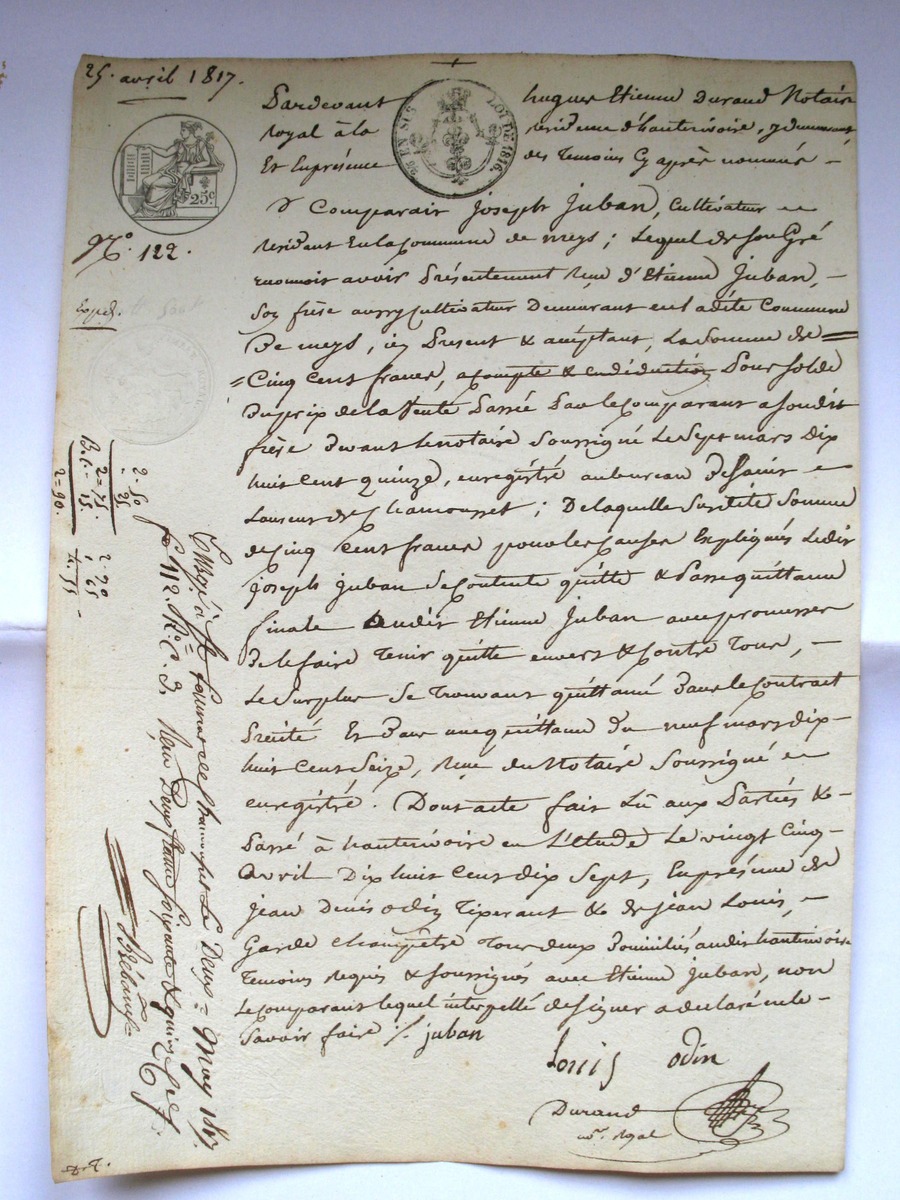 25. avril 1817.
Pardevant hugues Etienne Durand Notaire
royal à la residence d'hauterivoire, y demeurant
Et En présence des temoins Cy après nommés –
25 EN SUS
LOI DE 1816.
25c
No. 122.
Expd.
Comparait Joseph Juban, Cultivateur
residant En la Commune de meys ; Lequel de son Gré
reconnoit avoir Présentement Reçu d'Etienne Juban, –
Son frère aussy Cultivateur Demeurant en ladite Commune
De meys, icy Présent & acceptant, La Somme de =
= Cinq cent francs, acompte & en déduction Pour solde
Du prix de la Vente Passée Par le Comparant a Son dit
frère devant le notaire Soussigné Le Sept mars dix
huit Cent quinze, enregistré au bureau De Saint
Laurent de Chamousset ; De laquelle Susdite Somme
de Cinq Cent francs pour les Causes Expliqués Ledit
Joseph Juban Se Contente quitte & Passe quittance
finale audit Etienne Juban avec promesses
De le faire Tenir quitte envers & Contre Tous, –
Le Surplus Se Trouvant quittancé Dans le Contract
Précité Et Par une quittance Du neuf mars dix-
huit Cent Seize, Reçue du Notaire Soussigné
enregistré. Dont acte fait Lû aux Parties &
Passé à hauterivoire en L'étude Le vingt Cinq
Avril Dix huit Cent dix Sept, En présence de
Jean Denis odin Tixerant & de Jean Louis, –
Garde champêtre Tous deux Domiciliés audit hauterivoire
Temoins Requis & Soussignés avec Etienne Juban, non
Le Comparant lequel interpellé de Signer a declaré ne le
Savoir faire ./. juban
Louis odin
Durand
not. royal
2.50
25
2=75.
15
2=90.
2.20
65
St Laurent de Chamousset Le Deux May 1817
fo 112. Ro C. 3. Reçu Deux francs soixante & quinze Cent